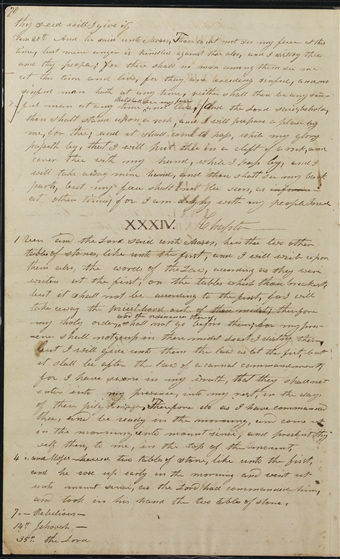 thy seed will I give it.
20th And he said unto Moses, Thou canst not see my face at this
time, lest mine anger is kindled against thee also, and I destroy thee
and thy people; for there shall no man among them see me
at this time and live, for they are exceeding sinful, and no
sinful man hath at any time, neither shall there be any sin-
that shall see my face
ful man at any time, and live. And the Lord said, behold,
thou shalt stand upon a rock, and I will prepare a place by
me, for thee, and it shall come to pass, while my glory
passeth by, that I will put thee in a cleft of a rock, and
cover thee with my hand, while I pass by, and I
will take away mine hand, and thou shalt see my back
parts, but my face shall not be seen, as
at other times; for I am angry with my people Israel
XXXIV. Chapter
1 And the Lord said unto Moses, hew thee two other
tables of stone, like unto the first, and I will write upon
them also, the words of the Law, according as they were
written at the first, on the tables which thou breakest;
but it shall not be according to the first, for I will
take away the priesthood out of their midst; therefore
and the ordinances thereof,
my holy order, shall not go before them; for my pre-
sence shall not go up in their midst lest I destroy them,
but I will give unto them the law as at the first, but
it shall be after the law of a carnal commandment;
for I have sworn in my wrath, that they shall not
enter into my presence, into my rest, in the days
of their pilgrimage. Therefore do as I have commanded
thee, and be ready in the morning, and come up
in the morning, unto mount Sinai, and present thy
self there, to me, in the top of the mount
4. And Moses hewed two tables of stone, like unto the first,
and he rose up early in the morning and went up
unto mount Sinai, as the Lord had commanded him,
and took in his hand the two tables of stone.
7.- Rebellious-
14th Jehovah-
35th the Lord